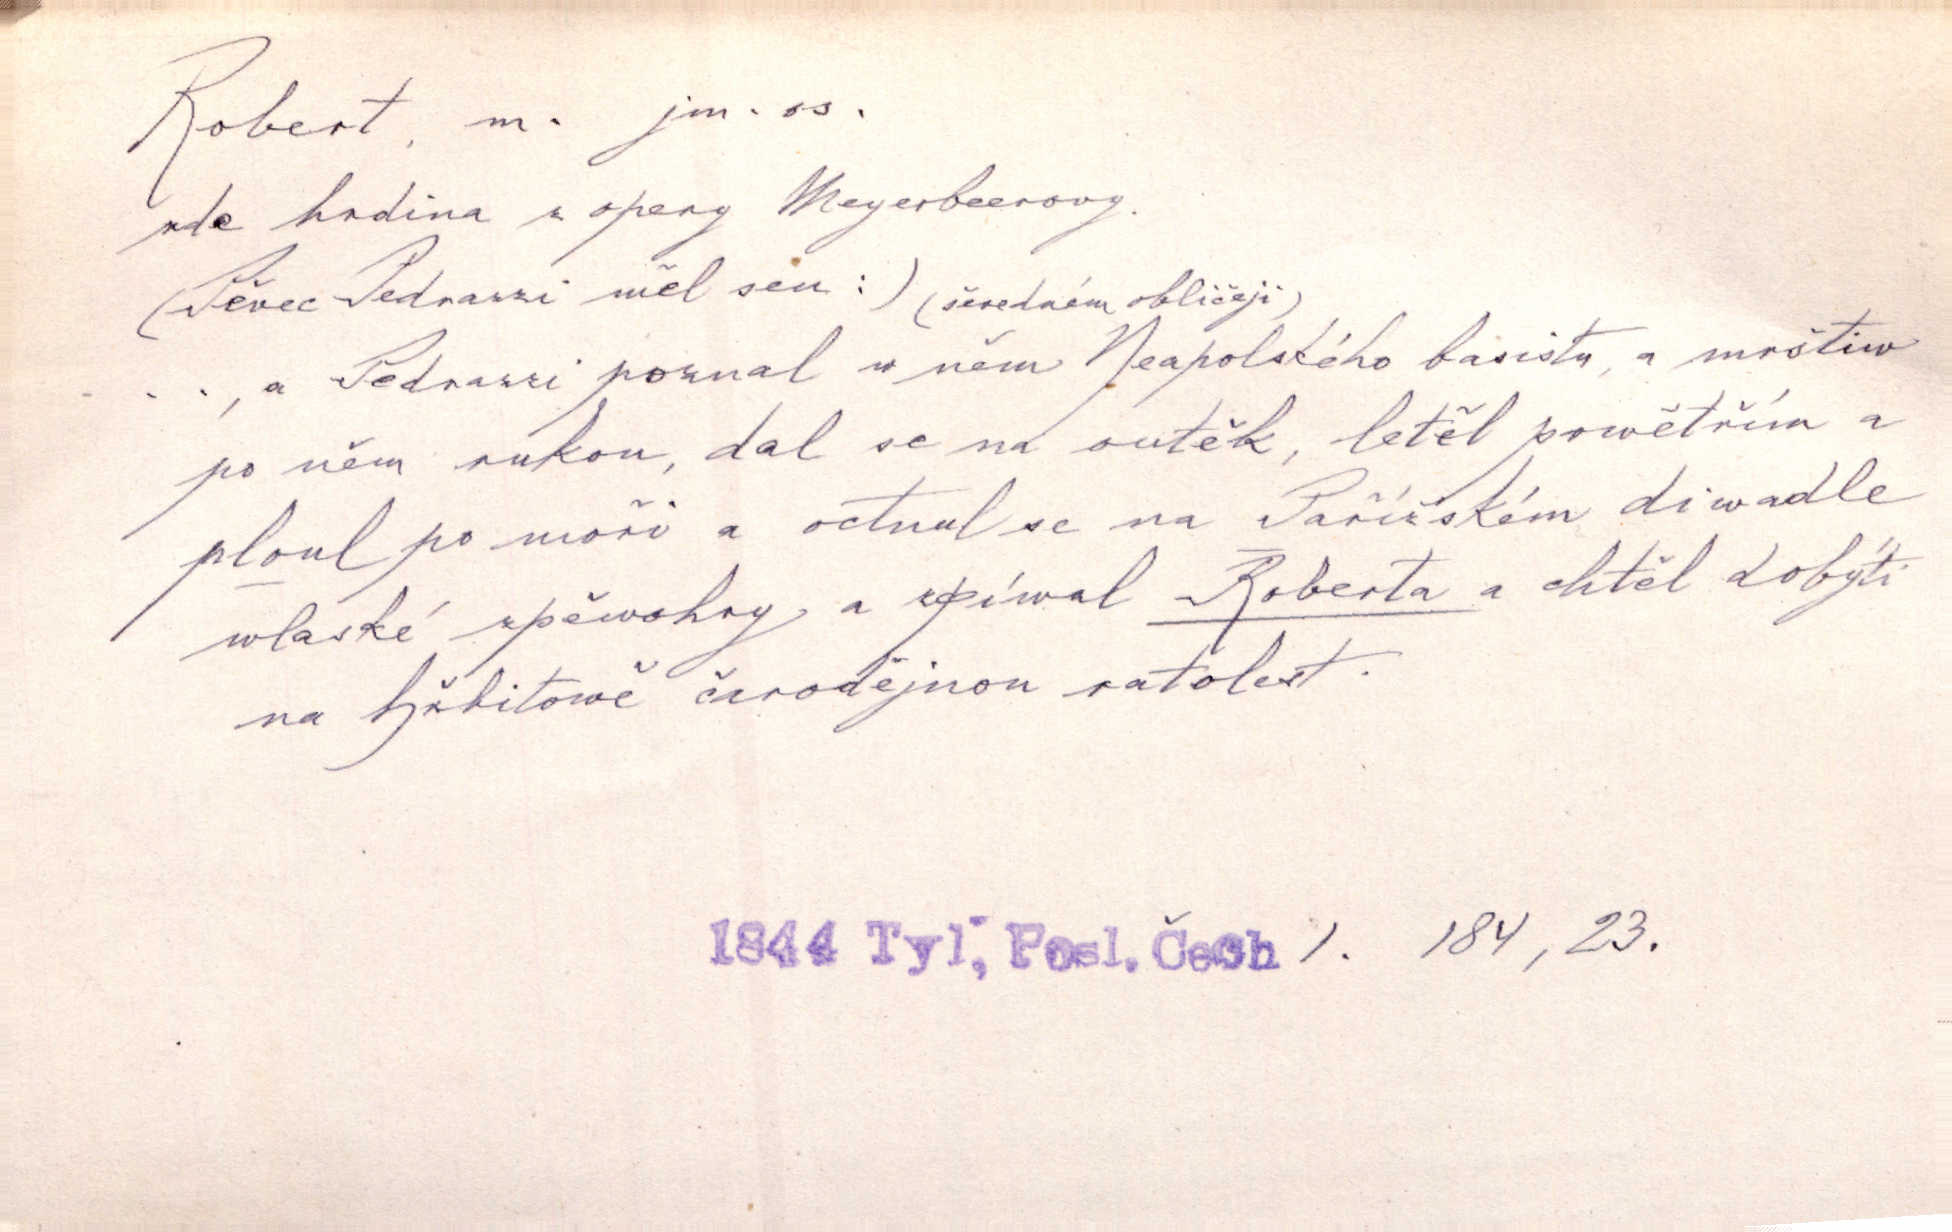 Robert, m. jm. os.
zde hrdina z opery Meyerbeerovy.
(Pěvec Pedrazzi měl sen:) (šeredném obličeji)
..., a Pedrazzi poznal w něm Neapolského basistu, a mrštiw
po něm rukou, dal se na outěk, letěl powětřím a
ploul po moři a octnul se na Pařížském diwadle
wlaské zpěwohry a zpíwal Roberta a chtěl dobýti
na hřbitowě čarodějnou ratolest.
1844 Tyl, Posl. Čech 1. 184, 23.